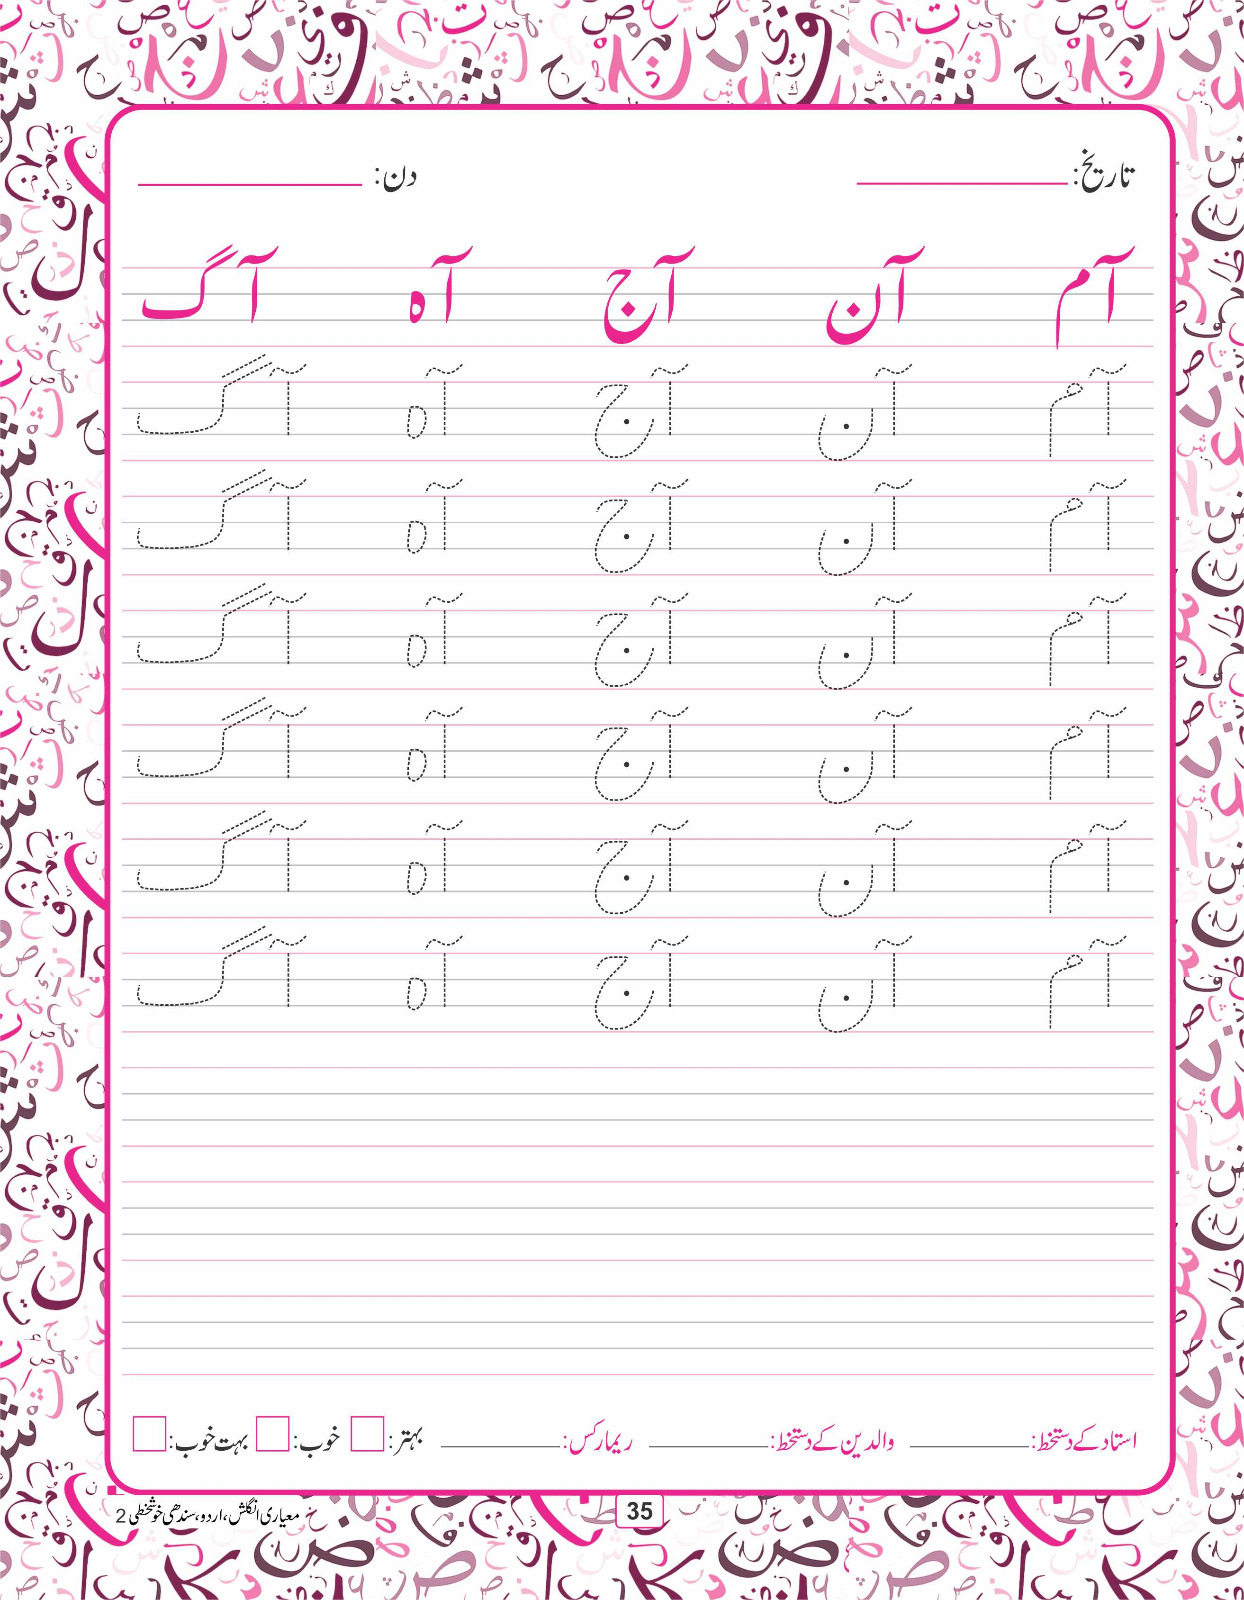 تاریخ: دن:
آم آن آج آہ آگ
آم آن آج آہ آگ
آم آن آج آہ آگ
آم آن آج آہ آگ
آم آن آج آہ آگ
آم آن آج آہ آگ
آم آن آج آہ آگ
استاد کے دستخط: والدین کے دستخط: ریمارکس: بہتر: خوب: بہت خوب:
35
معیاری انگلش، اردو، سندھی خوشخطی 2